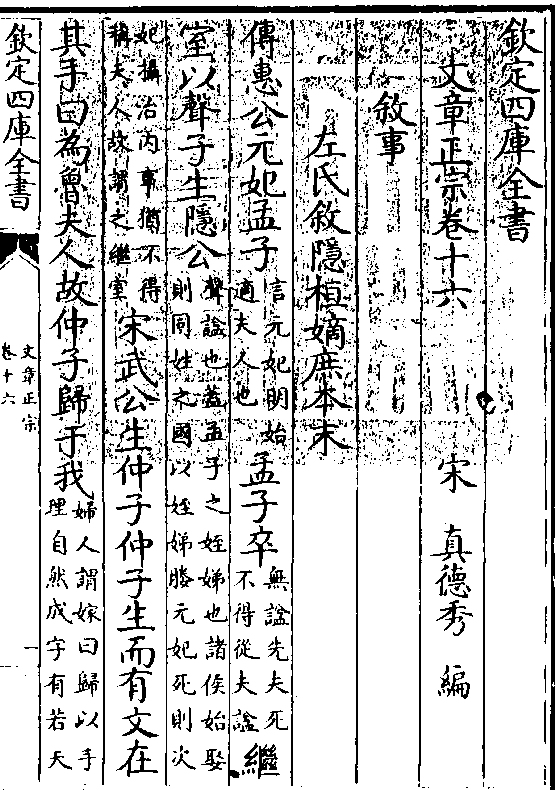 欽定四庫全書
文章正宗卷十六
宋 真德秀 編
敘事
左氏敘隱桓嫡庶本末
傳惠公元妃孟子
言元妃明始
適夫人也
孟子卒
無諡先夫死
不得從夫諡
繼
室以聲子生隱公
聲諡也蓋孟子之姪娣也諸侯始娶
則同姓之國以姪娣媵元妃死則次
妃攝治内事猶不得
稱夫人故謂之繼室
宋武公生仲子仲子生而有文在
其手曰為魯夫人故仲子歸于我
婦人謂嫁曰歸以手
理自然成字有若天
欽定四庫全書
文章正宗
卷十六
一